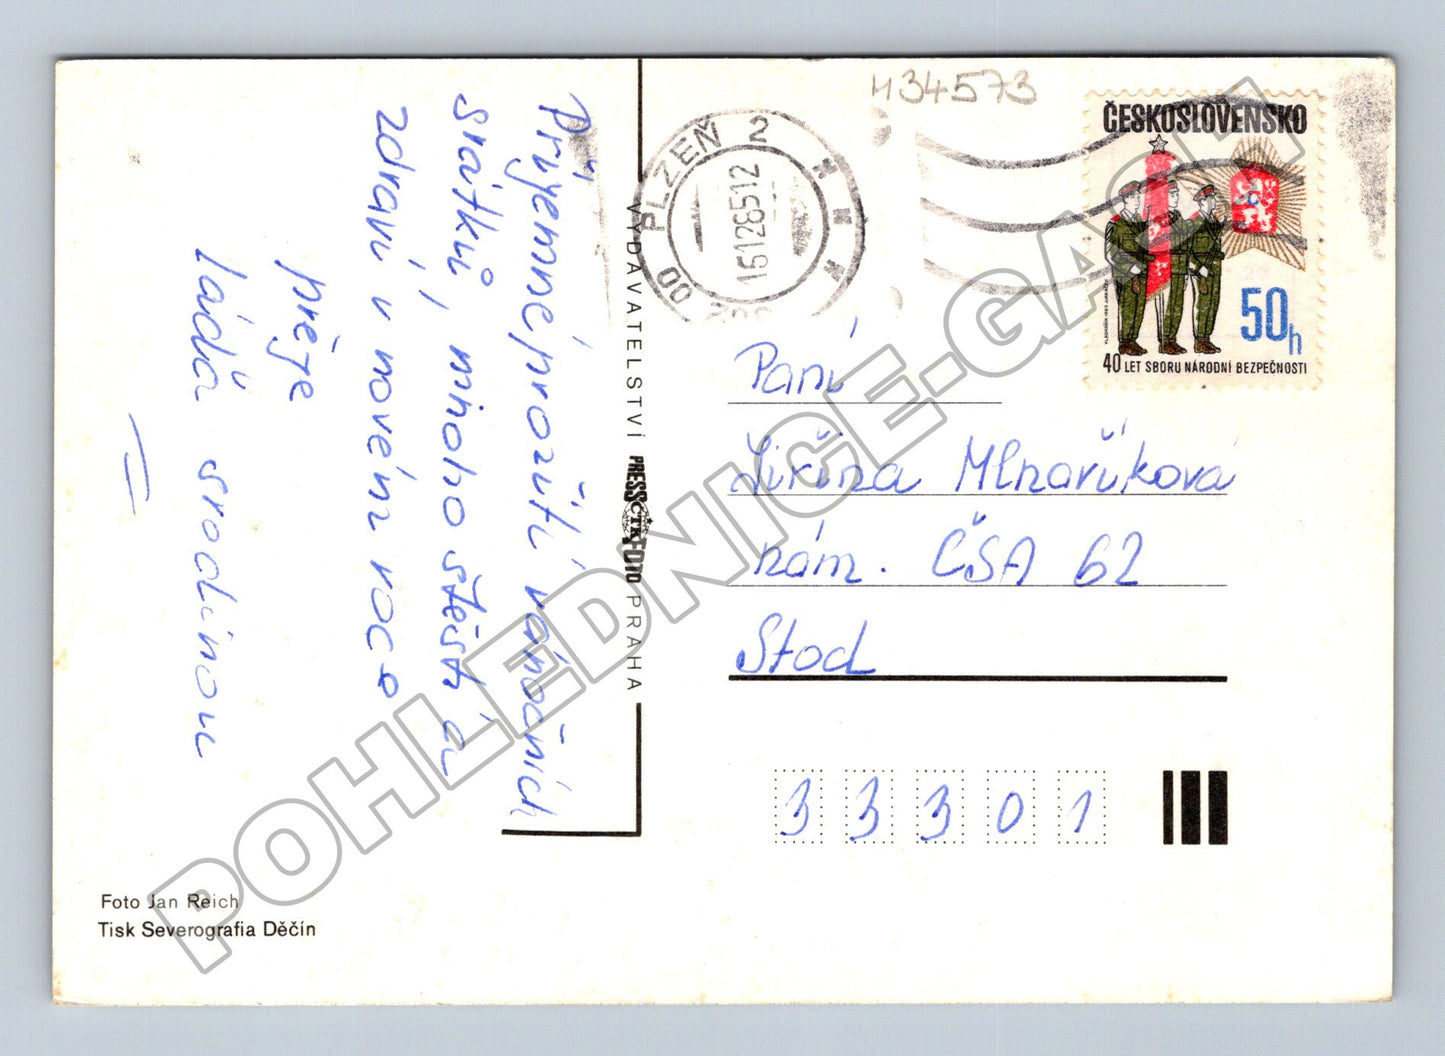 Příjemné prožití vánočních
svátků, mnoho štěstí a
zdraví v novém roce
přeje
Láďa s rodinou
Foto Jan Reich
Tisk Severografia Děčín
VYDAVATELSTVÍ PRESSFOTO PRAHA
ČTK
434573
PLZEŇ 2
00
16.12.85.12
ČESKOSLOVENSKO
50h
40 LET SBORU NÁRODNÍ BEZPEČNOSTI
Paní
Jiřina Mlnaříková
nám. ČSA 62
Stod
333 01
POHLEDNICE-GASH